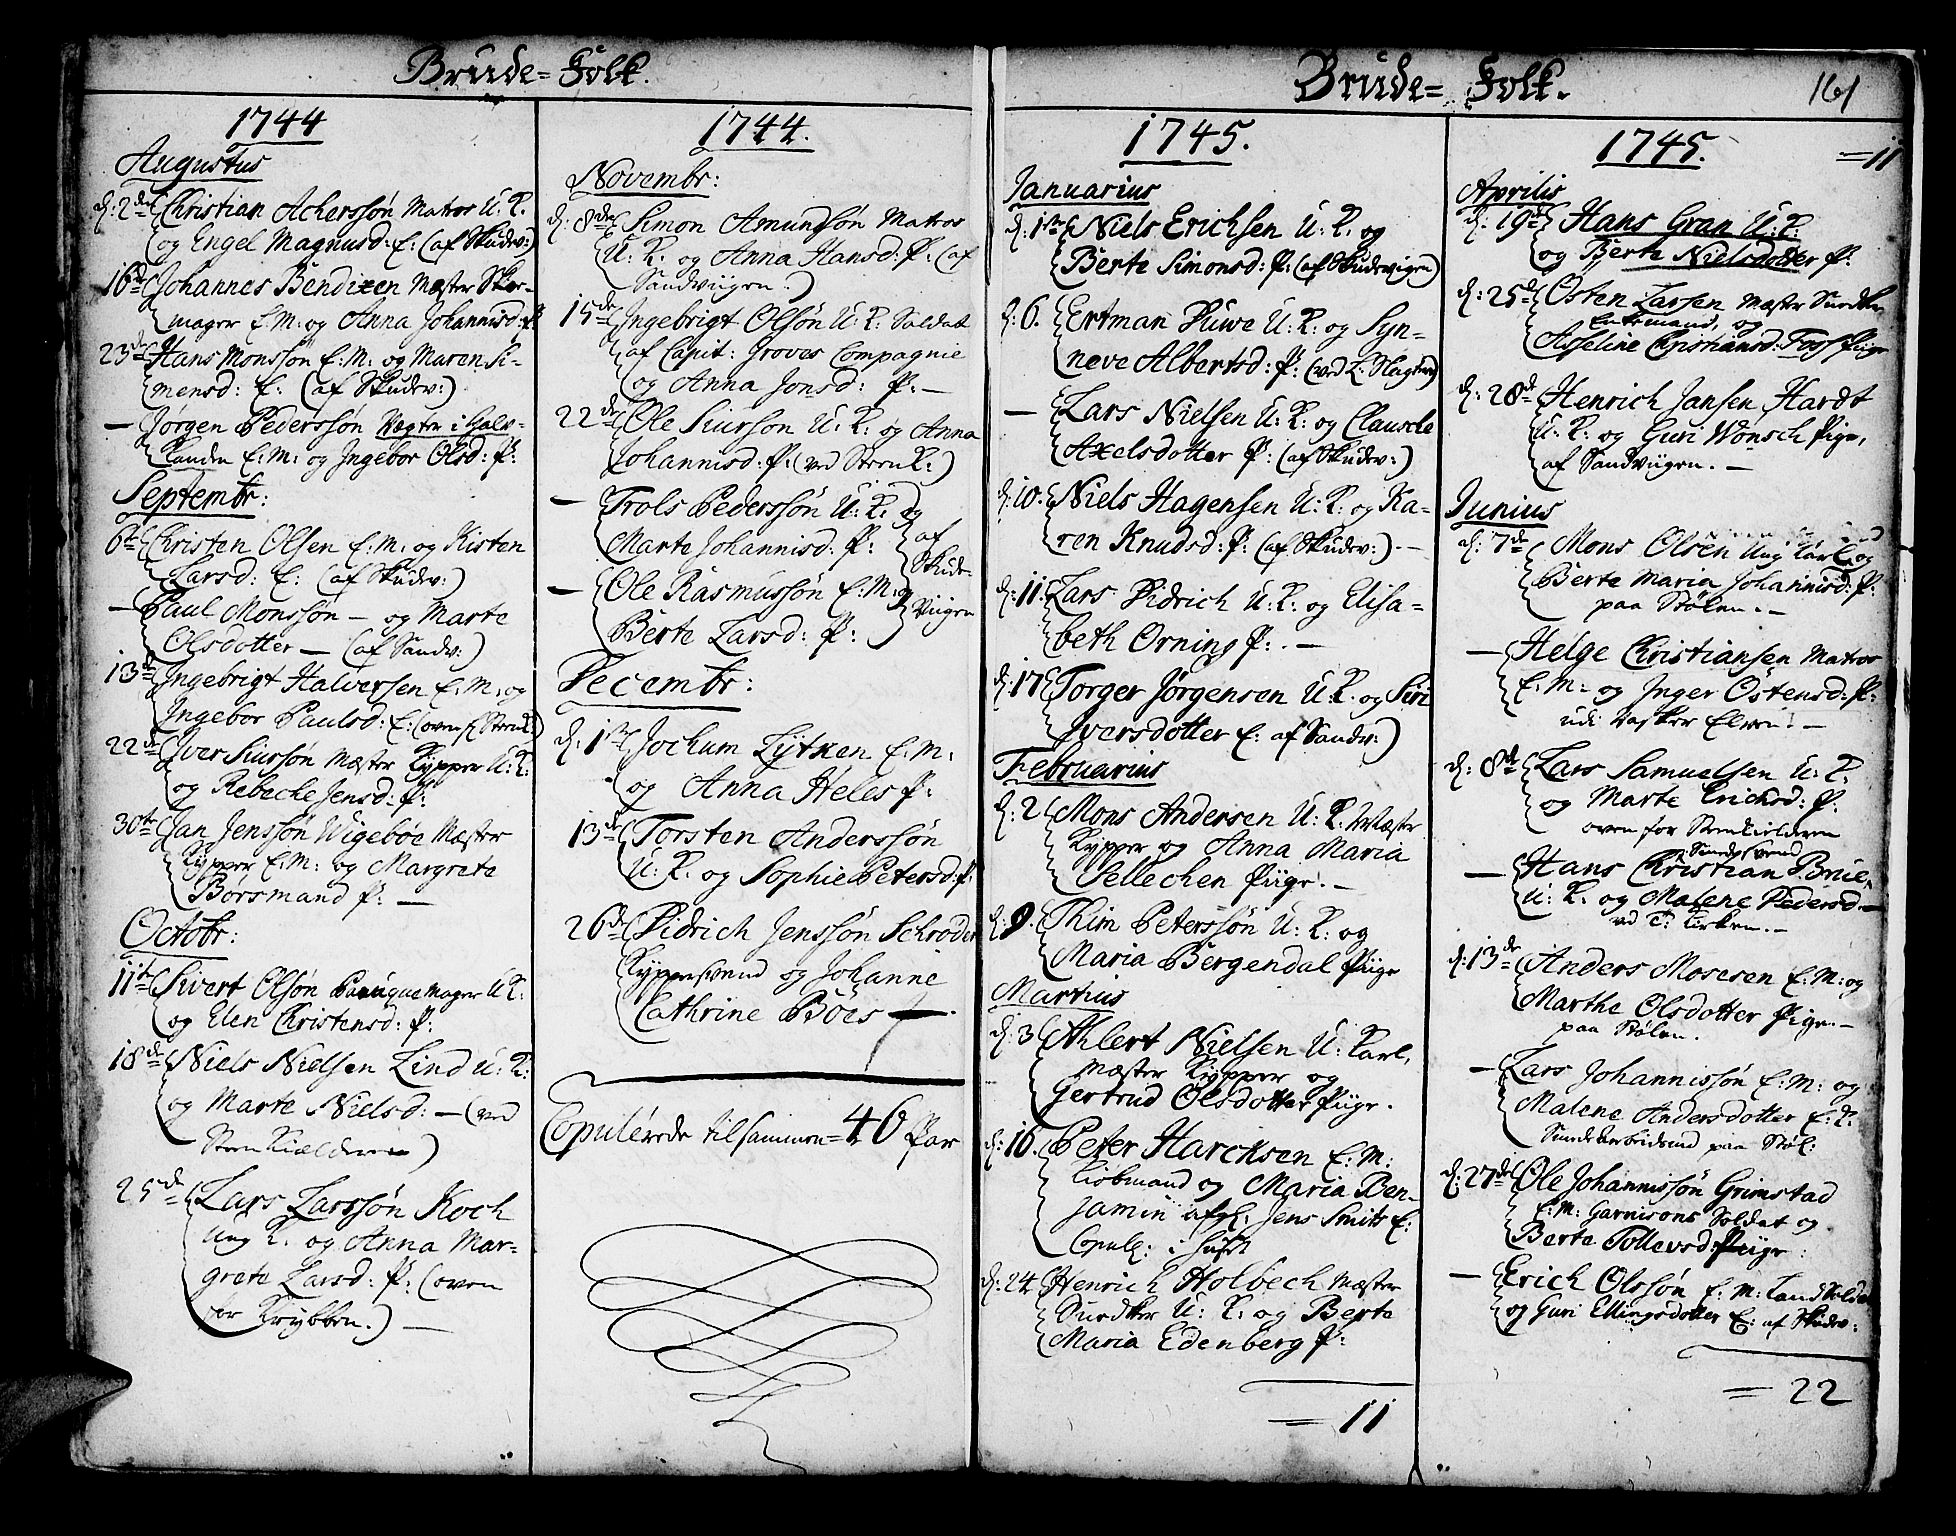 Brude= Folk.
1744
Augustus
d: 2de Christian Ackerssøn Matros U: K.
og Engel Magnusd: E: (af Skudev:)
16de Johannes Bendixen Mæster Skoe-
mager E: M: og Anna Johannisd: P:
23de Hans Monssøn E: M: og Maren Si-
mensd: E: (af Skudev:)
— Jørgen Pederssøn Vægter i
E: M: og Ingebor Olsd: P:
Septembr:
6te Christen Olsen E: M: og Kisten
Larsd: E: (af Skudev:)
— Paul Monssøn — og Marte
Olsdotter — (af Sandv:)
13de Ingebrigt Halversen E: M: og
Ingebor Paulsd: E: (oven f: SteenK:)
22de Iver Siurssøn Mæster Kypper U: K:
og Rebecke Jensd: P:
30te Jan Jenssøn Wigebøe Mæster
Kypper E: M: og Margrete
Borsmand P: —
Octobr:
11te Sivert Olsøn Paruque Mager U: K:
og Elen Christensd: P:
18de Niels Nielsen Lind U: K:
og Marte Nielsd: — (ved
SteenKielderen)
25de Lars Larssøn Koch
Ung K. og Anna Mar-
grete Larsd: P: (oven
for Krybben.) —
1744.
Novembr:
d: 8de Simon Amundsøn Matros
U: K: og Anna Hansd: P: (af
Sandviigen.)
15de Ingebrigt Olsøn U: K: Soldat
af Capit: Groves Compagnie
og Anna Jonsd: P: —
22de Ole Siurson U: K: og Anna
Johannisd: P: (ved SteenK:)
— Trols Pederssøn U: K: og
Marte Johannisd: P:
— Ole Rasmussøn E: M: og
Berte Larsd: P:
af
Skude-
Viigen
Decembr:
d: 1ste Jochum Lÿtken E: M:
og Anna Heles P:
13de Torsten Anderssøn
U: K. og Sophie Petersd: P:
26de Didrich Jenssøn Schrøder
Kyppersvend og Johanne
Cathrine Böes —
Copulerede tilsammen = 46 Par
Brude= Folk.
161
1745.
Januarius
d: 1ste Niels Erichsen U: K. og
Berte Simonsd: P: (af Skudeviigen)
d: 6. Ertman Duwe U: K: og Syn-
neve Albertsd: P: (ved K: Slagteren)
— Lars Nielsen U: K: og Clauscke
Axelsdotter P: (af Skudev:)
d: 10. Niels Hagensen U: K: og Ka-
ren Knudsd: P: (af Skudev:). —
d: 11. Lars Didrich U: K: og Elisa-
beth Orning P: . —
d: 17 Torger Jørgensen U: K. og Siri
Iversdotter E: af Sandv:)
Februarius
d: 2 Mons Andersen U: K. Mæster
Kypper og Anna Maria
Sellechen Piige. —
d: 9. Thim Peterssøn U: K: og
Maria Bergendal Piige
Martius
d: 3 Ahlert Nielsen U: Karl,
Mæster Kypper og
Gertrud Olsdotter Piige.
d: 16. Peter Harcksen E: M:
Kiøbmand og Maria Ben-
jamin afg: Jens Smits E:
Copul: i Huset
d: 24. Henrich Holbech Mæster
Snedker U: K: og Berte
Maria Edenberg P:
= 11
1745.
= 11
Aprilis
d: 19de Hans Gran U: K:
og Berte Nielsdotter P:
d: 25de Østen Larsen Mæster Snedker
Enkemand, og
Asseline Christiansd: Fogs Piige
d: 28de Henrich Jansen Hardt
U: K: og Guri Wonsch Pige,
af Sandviigen. —
Junius
d: 7de Mons Olsen Ung Karl og
Berte Maria Johannisd: P:
paa Stølen. —
— Helge Christiansen Matros
E: M: og Inger Østensd: P:
udi Vasker Elven: —
d: 8de Lars Samuelsen U: K.
og Marte Erichsd: P:
oven for SteenKielderen
— Hans Christian Brüe,
U: K. og Malene Pedersd: —
ved T: Kirken. —
d: 13de Anders Mosesen E: M: og
Marthe Olsdotter Pige. —
paa Stølen.
— Lars Johannissøn E: M: og
Malene Andersdotter E: K.
paa Støl:
d: 27de Ole Johannissøn Grimstad
E: M: Garnisons Soldat og
Berte Tollevsd: Piige
— Erich Olssøn E: M: Landsoldat
og Guri Ellingsdotter E: af Skudev:
= 22